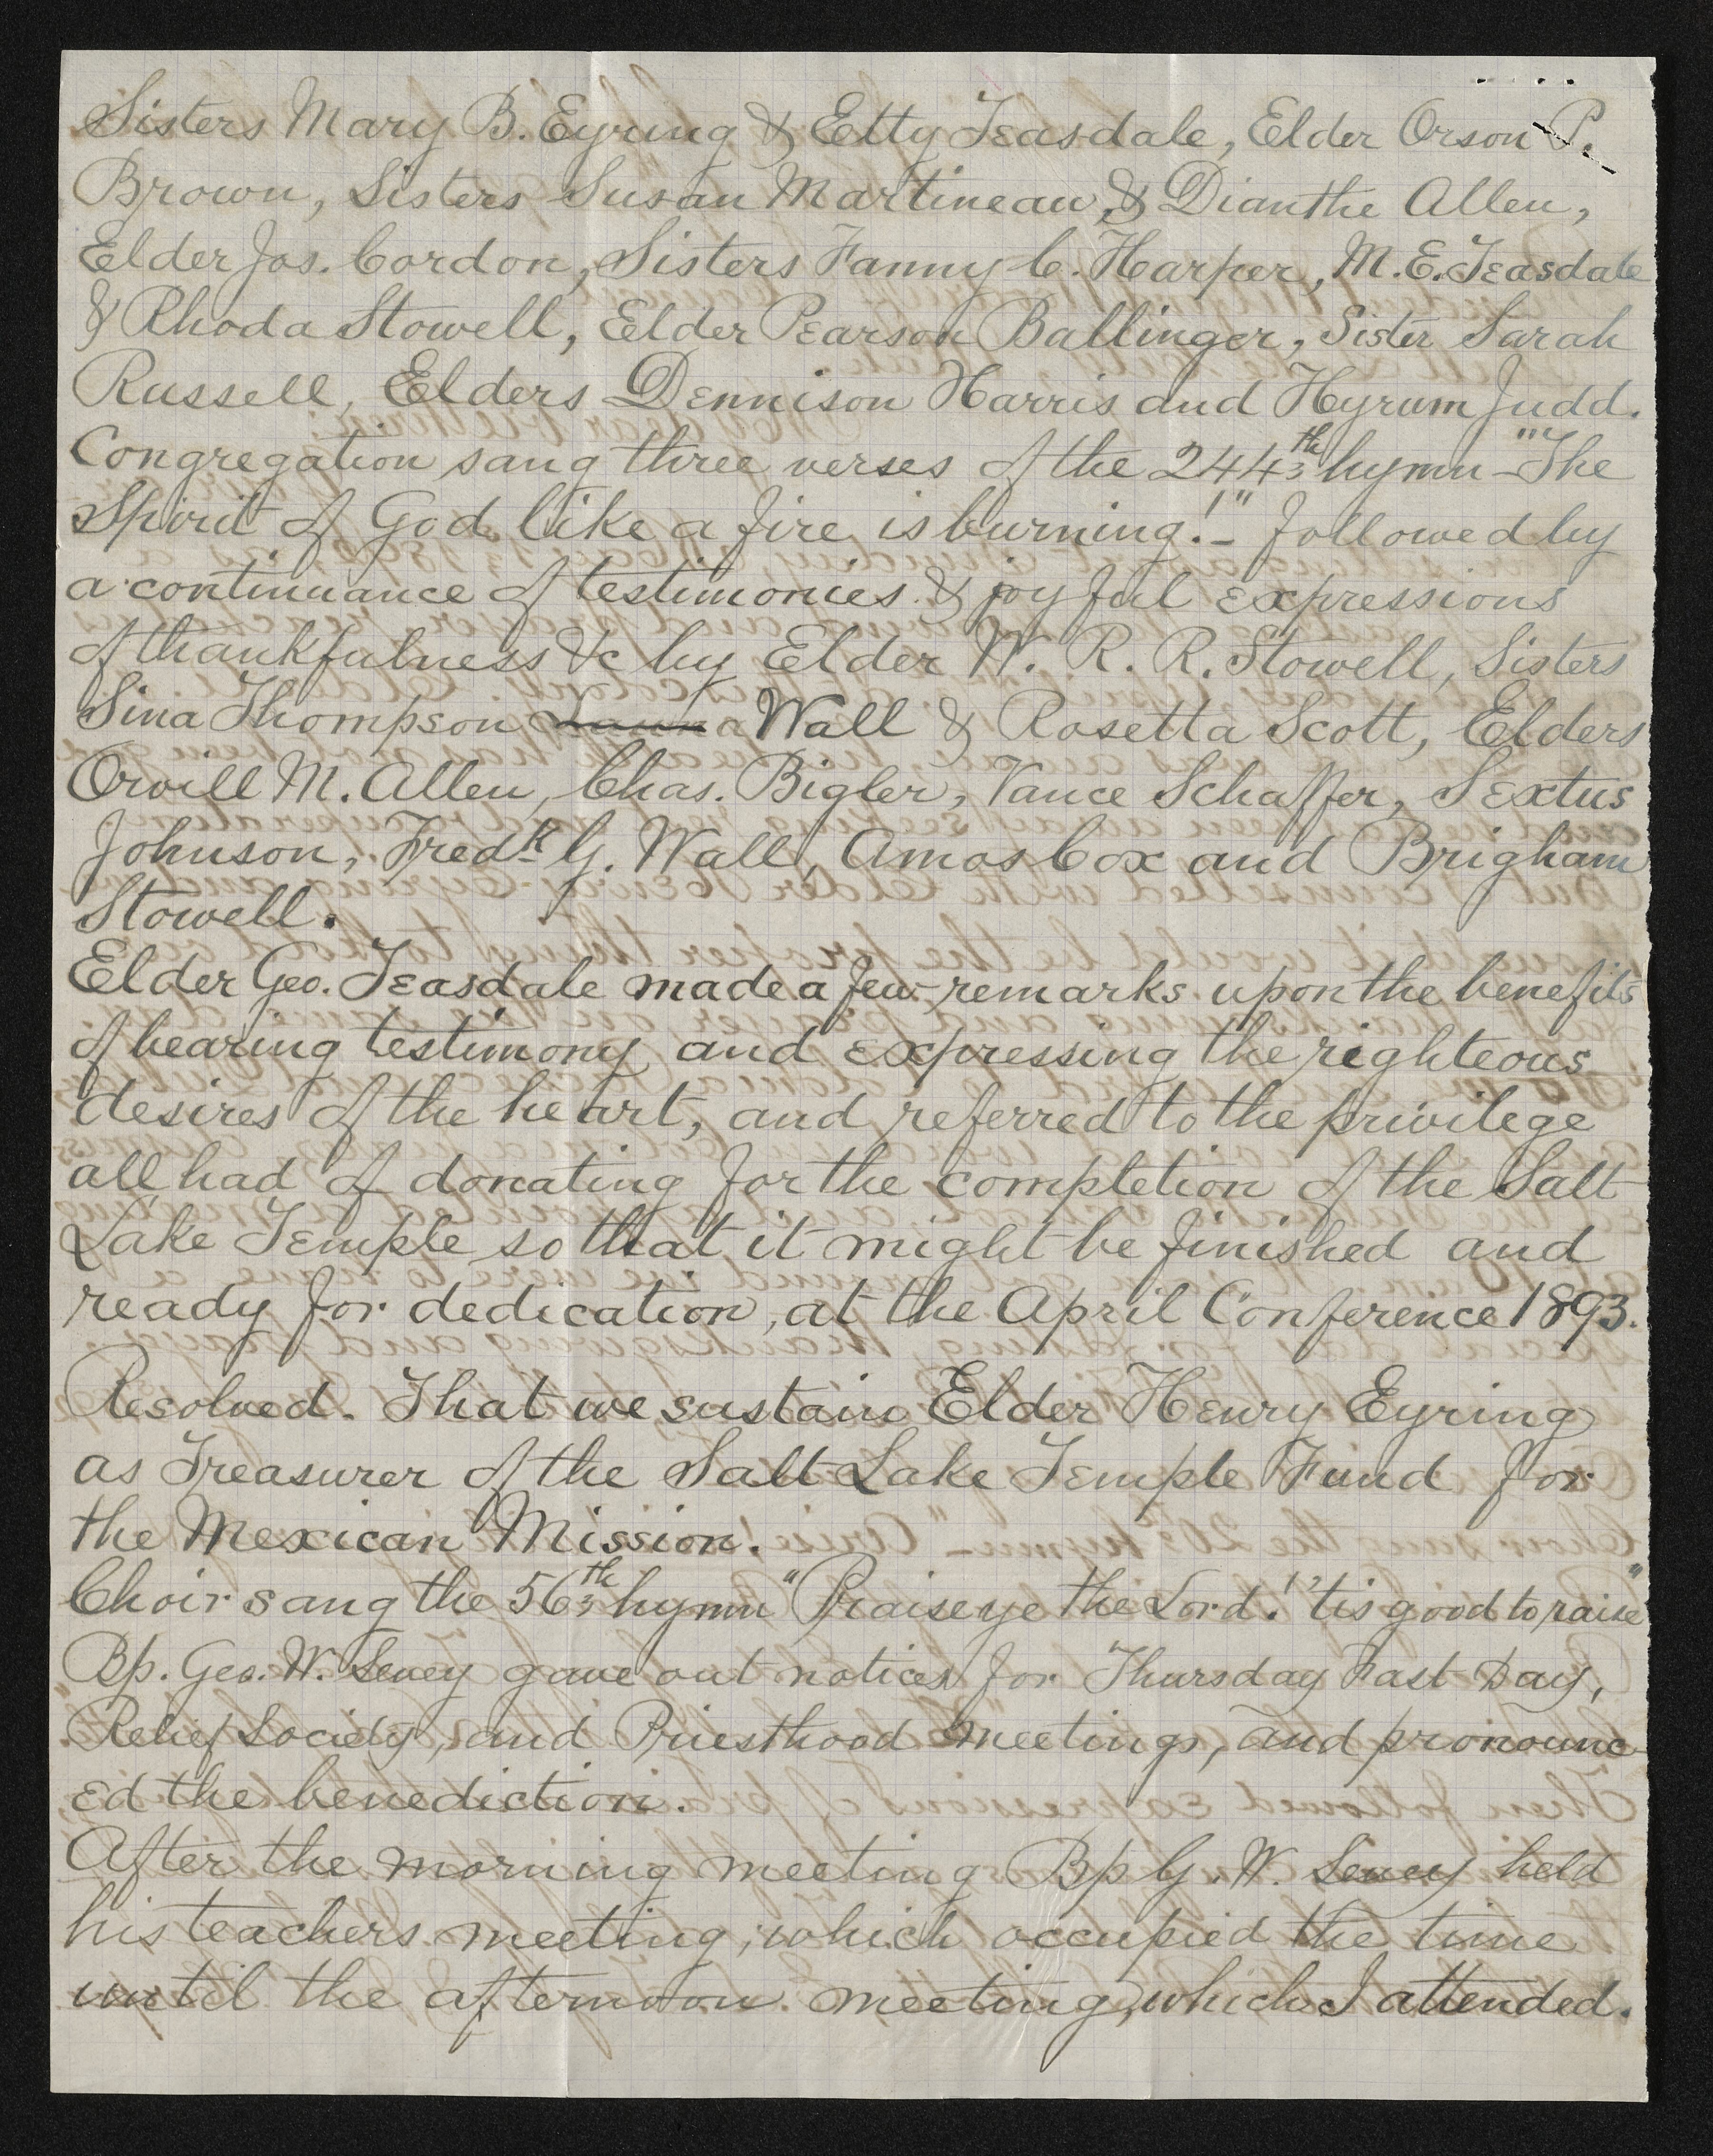 Sisters Mary B. Eyring & Etty Teasdale, Elder Orson P.
Brown, Sisters Susan Martineau, & Dianthe Allen,
Elder Jos. Cordon, Sisters Fanny C. Harper, M.E. Teasdale
& Rhoda Stowell, Elder Pearson Ballinger, Sister Sarah
Russell, Elders Dennison Harris and Hyrum Judd.
Congregation sang three verses of the 244th hymn - "The
Spirit of God like a fire is burning!" - followed by
a continuance of testimonies & joyful expressions
of thankfulness &c by Elder W. R. R. Stowell, Sisters
Sina Thompson Wall & Rosetta Scott, Elders
Orvill M. Allen, Chas. Bigler, Vance Schaffer, Sextus
Johnson, Fredk G. Wall, Amos Cox and Brigham
Stowell.
Elder Geo. Teasdale made a few remarks upon the benefits
of bearing testimony and expressing the righteous
desires of the heart, and referred to the privilege
all had of donating for the completion of the Salt
Lake Temple so that it might be finished and
ready for dedication, at the April Conference 1893.
Resolved. That we sustain Elder Henry Eyring
as Treasurer of the Salt Lake Temple Fund for
the Mexican Mission.
Choir sang the 56th hymn "Praise ye the Lord! 'tis good to raise"
Bp. Geo. W. Sevey gave out notices for Thursday Fast Day,
Relief Society, and Priesthood meetings, and pronounc-
ed the benediction.
After the morning meeting Bp G. W. Sevey held
his teachers meeting, which occupied the time
until the afternoon meeting, which I attended.